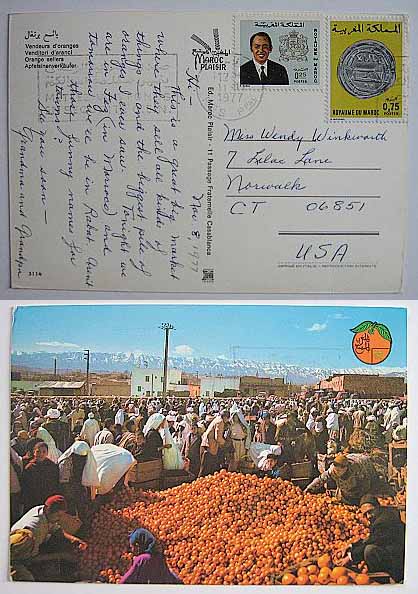 بائع برتقال
Vendeurs d'oranges
Venditori d'aranci
Orange sellers
Apfelsinenverkäufer
Hi —
This is a great big market
where they sell all kinds of
things — and the biggest pile of
oranges I ever saw. Tonight we
are in Fez (in Morocco) and
tomorrow we'll be in Rabat. Aren't
those funny names for
towns?
See you soon —
Grandma and Grandpa
Nov. 8, 1977
3114
Ed. Maroc Plaisir - 11 Passage Fraternelle Casablanca
MAROC
PLAISIR
المملكة المغربية
ROYAUME DU MAROC
0,25
POSTES
المملكة المغربية
0,75
POSTES
ROYAUME DU MAROC
Miss Wendy Winkworth
7 Lilac Lane
Norwalk
CT 06851
USA